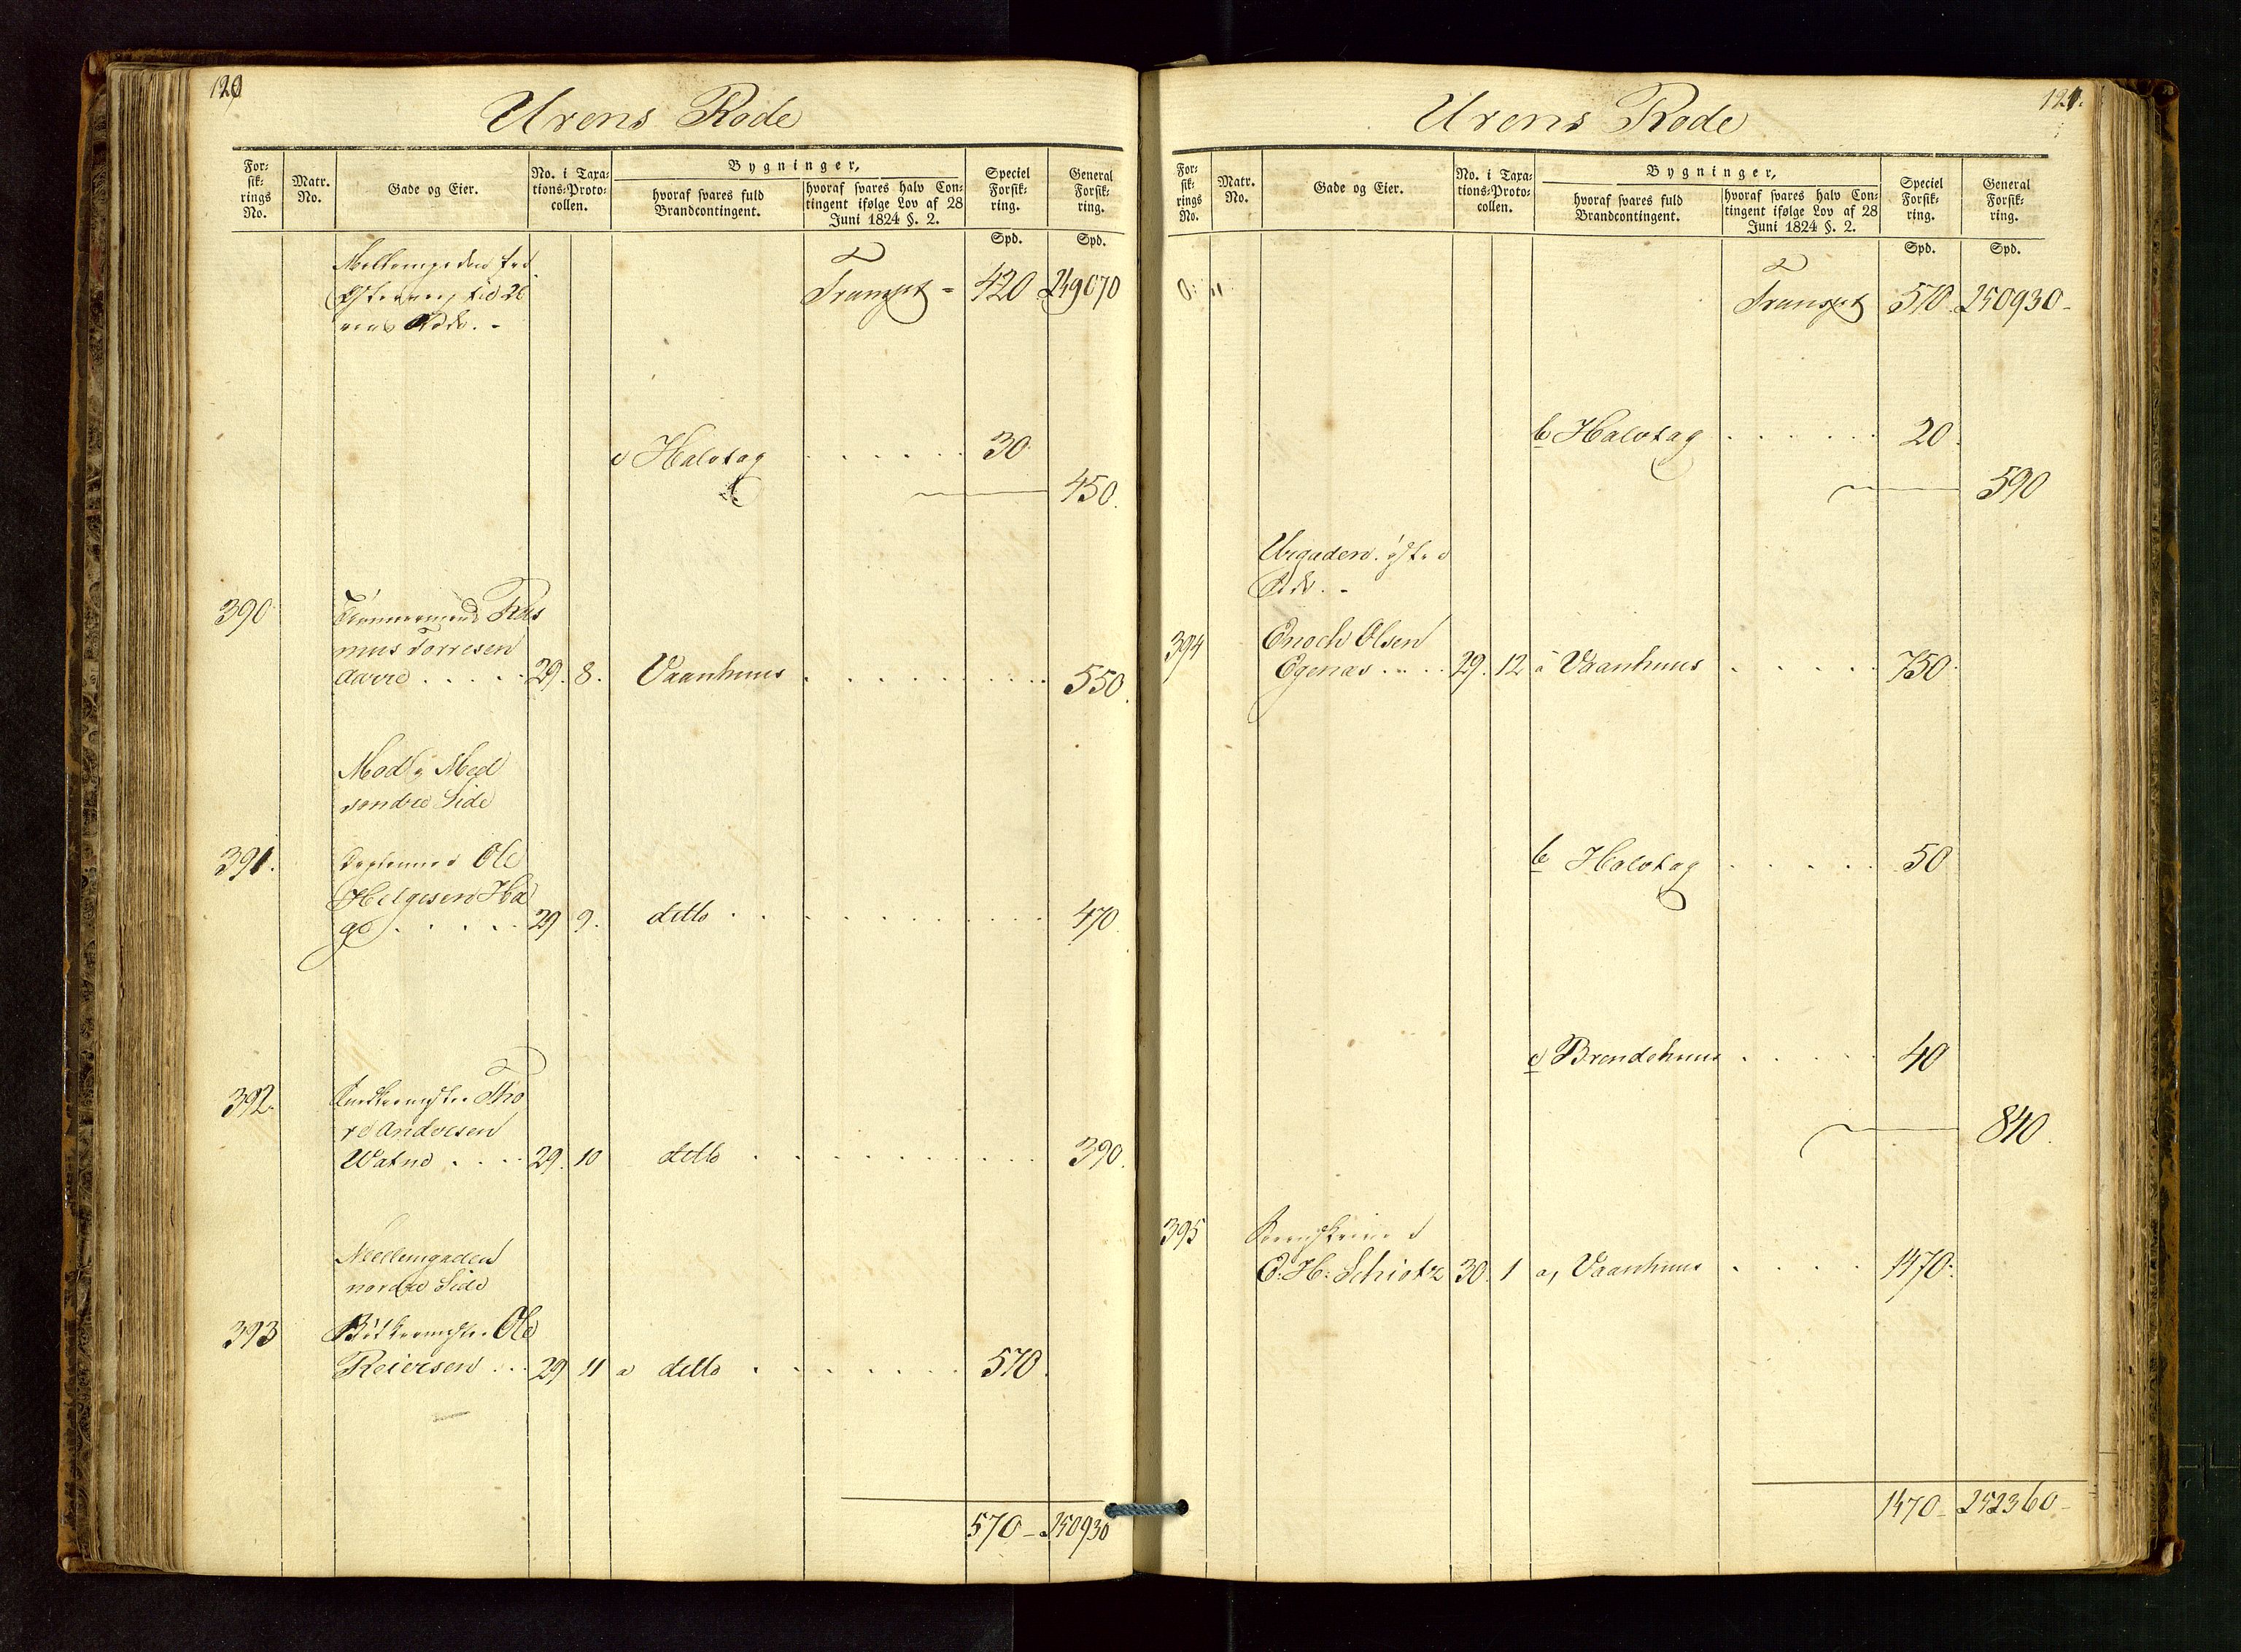 120
Urens Rode
For-
sik-
rings
No.
Matr.
No.
Gade og Eier.
No. i Taxa-
tions-Proto-
collen.
Bygninger,
hvoraf svares fuld
Brandcontingent.
hvoraf svares halv Con-
tingent ifølge Lov af 28
Juni 1824 §. 2.
Speciel
Forsik-
ring.
General
Forsik-
ring.
Spd.
Spd.
Transpt = 420 249070
c Halvtag . . . . . . 30
450.
390 Tømmermand Ras
mus Torresen
Aarre . . . . . 29. 8. Vaanhuus . . . . . . . . . 550.
Side
søndre Side
391. Ole
Helgesen Ha
ge . . . . . 29 9. ditto . . . . . . . . . . 470.
392. Tho
re Andresen
Watne . . . . 29. 10 ditto . . . . . . . . . . 390.
Mellemgaden
nordre Side
393 Ole
Reiersen . . . 29 11 a ditto . . . . . . . 570.
570 - 250930
121.
Urens Rode
For-
sik-
rings
No.
Matr.
No.
Gade og Eier.
No. i Taxa-
tions-Proto-
collen.
Bygninger,
hvoraf svares fuld
Brandcontingent.
hvoraf svares halv Con-
tingent ifølge Lov af 28
Juni 1824 §. 2.
Speciel
Forsik-
ring.
General
Forsik-
ring.
Spd.
Spd.
Transpt 570. 250930-
b Halvtag . . . . . . 20.
590
Urgaden østre
Side. -
394 Enoch Olsen
Egenæs . . . . 29. 12 a Vaanhuus . . . . . 750.
b Halvtag . . . . . 50
c Brendehuus . . . . . 40
840.
395
O: H: Schiøtz 30. 1 a, Vaanhuus . . . . 1470:
1470- 252360-